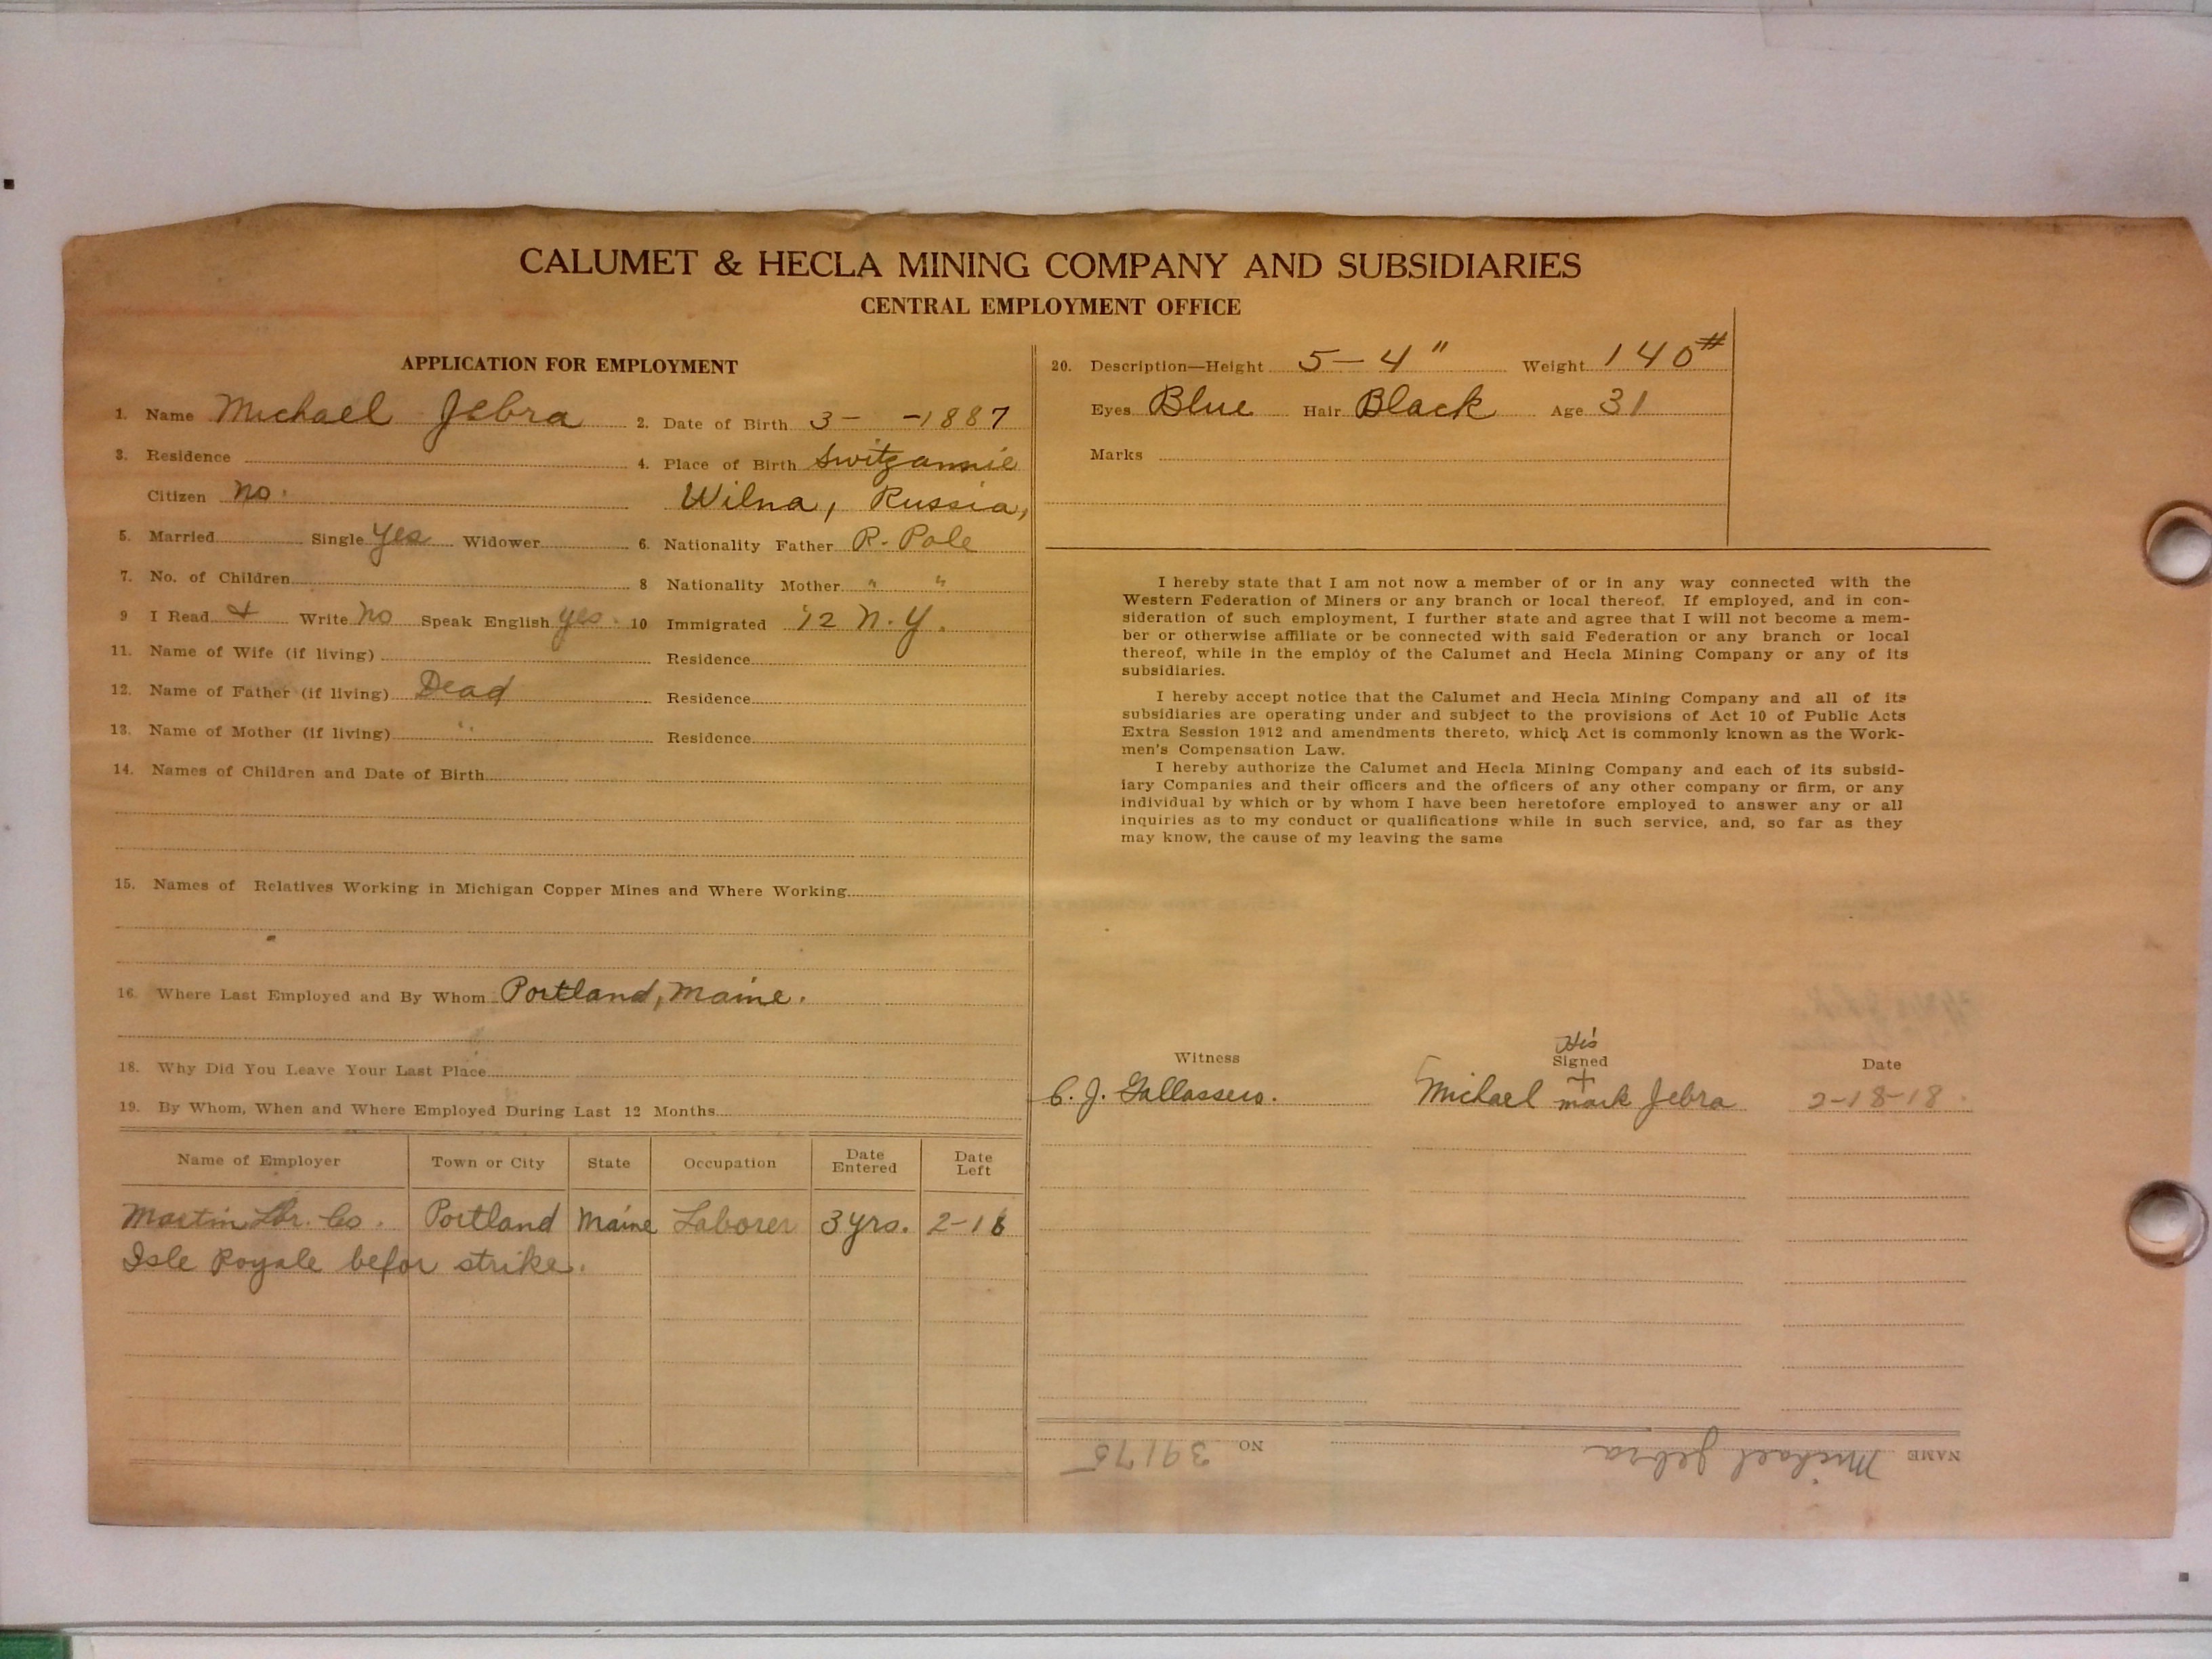 CALUMET & HECLA MINING COMPANY AND SUBSIDIARIES
CENTRAL EMPLOYMENT OFFICE
APPLICATION FOR EMPLOYMENT
1. Name Michael Jebra 2. Date of Birth 3- -1887
3. Residence 4. Place of Birth Switzannie
Citizen no. Wilna, Russia,
5. Married Single yes Widower 6. Nationality Father R. Pole
7. No. of Children 8 Nationality Mother " "
9 I Read & Write no Speak English yes. 10 Immigrated '12 N.Y.
11. Name of Wife (if living) Residence
12. Name of Father (if living) Dead Residence
13. Name of Mother (if living) " Residence
14. Names of Children and Date of Birth
15. Names of Relatives Working in Michigan Copper Mines and Where Working
16. Where Last Employed and By Whom Portland, Maine.
18. Why Did You Leave Your Last Place
19. By Whom, When and Where Employed During Last 12 Months
Name of Employer Town or City State Occupation Date Entered Date Left
Martin Lbr. Co. Portland Maine Laborer 3 yrs. 2-16
Isle Royale befor strike.
20. Description—Height 5-4" Weight 140#
Eyes Blue Hair Black Age 31
Marks
I hereby state that I am not now a member of or in any way connected with the
Western Federation of Miners or any branch or local thereof. If employed, and in con-
sideration of such employment, I further state and agree that I will not become a mem-
ber or otherwise affiliate or be connected with said Federation or any branch or local
thereof, while in the employ of the Calumet and Hecla Mining Company or any of its
subsidiaries.
I hereby accept notice that the Calumet and Hecla Mining Company and all of its
subsidiaries are operating under and subject to the provisions of Act 10 of Public Acts
Extra Session 1912 and amendments thereto, which Act is commonly known as the Work-
men's Compensation Law.
I hereby authorize the Calumet and Hecla Mining Company and each of its subsid-
iary Companies and their officers and the officers of any other company or firm, or any
individual by which or by whom I have been heretofore employed to answer any or all
inquiries as to my conduct or qualifications while in such service, and, so far as they
may know, the cause of my leaving the same
His
Witness Signed Date
C. J. Michael + mark Jebra 2-18-18.
NAME Michael Jebra NO 39175